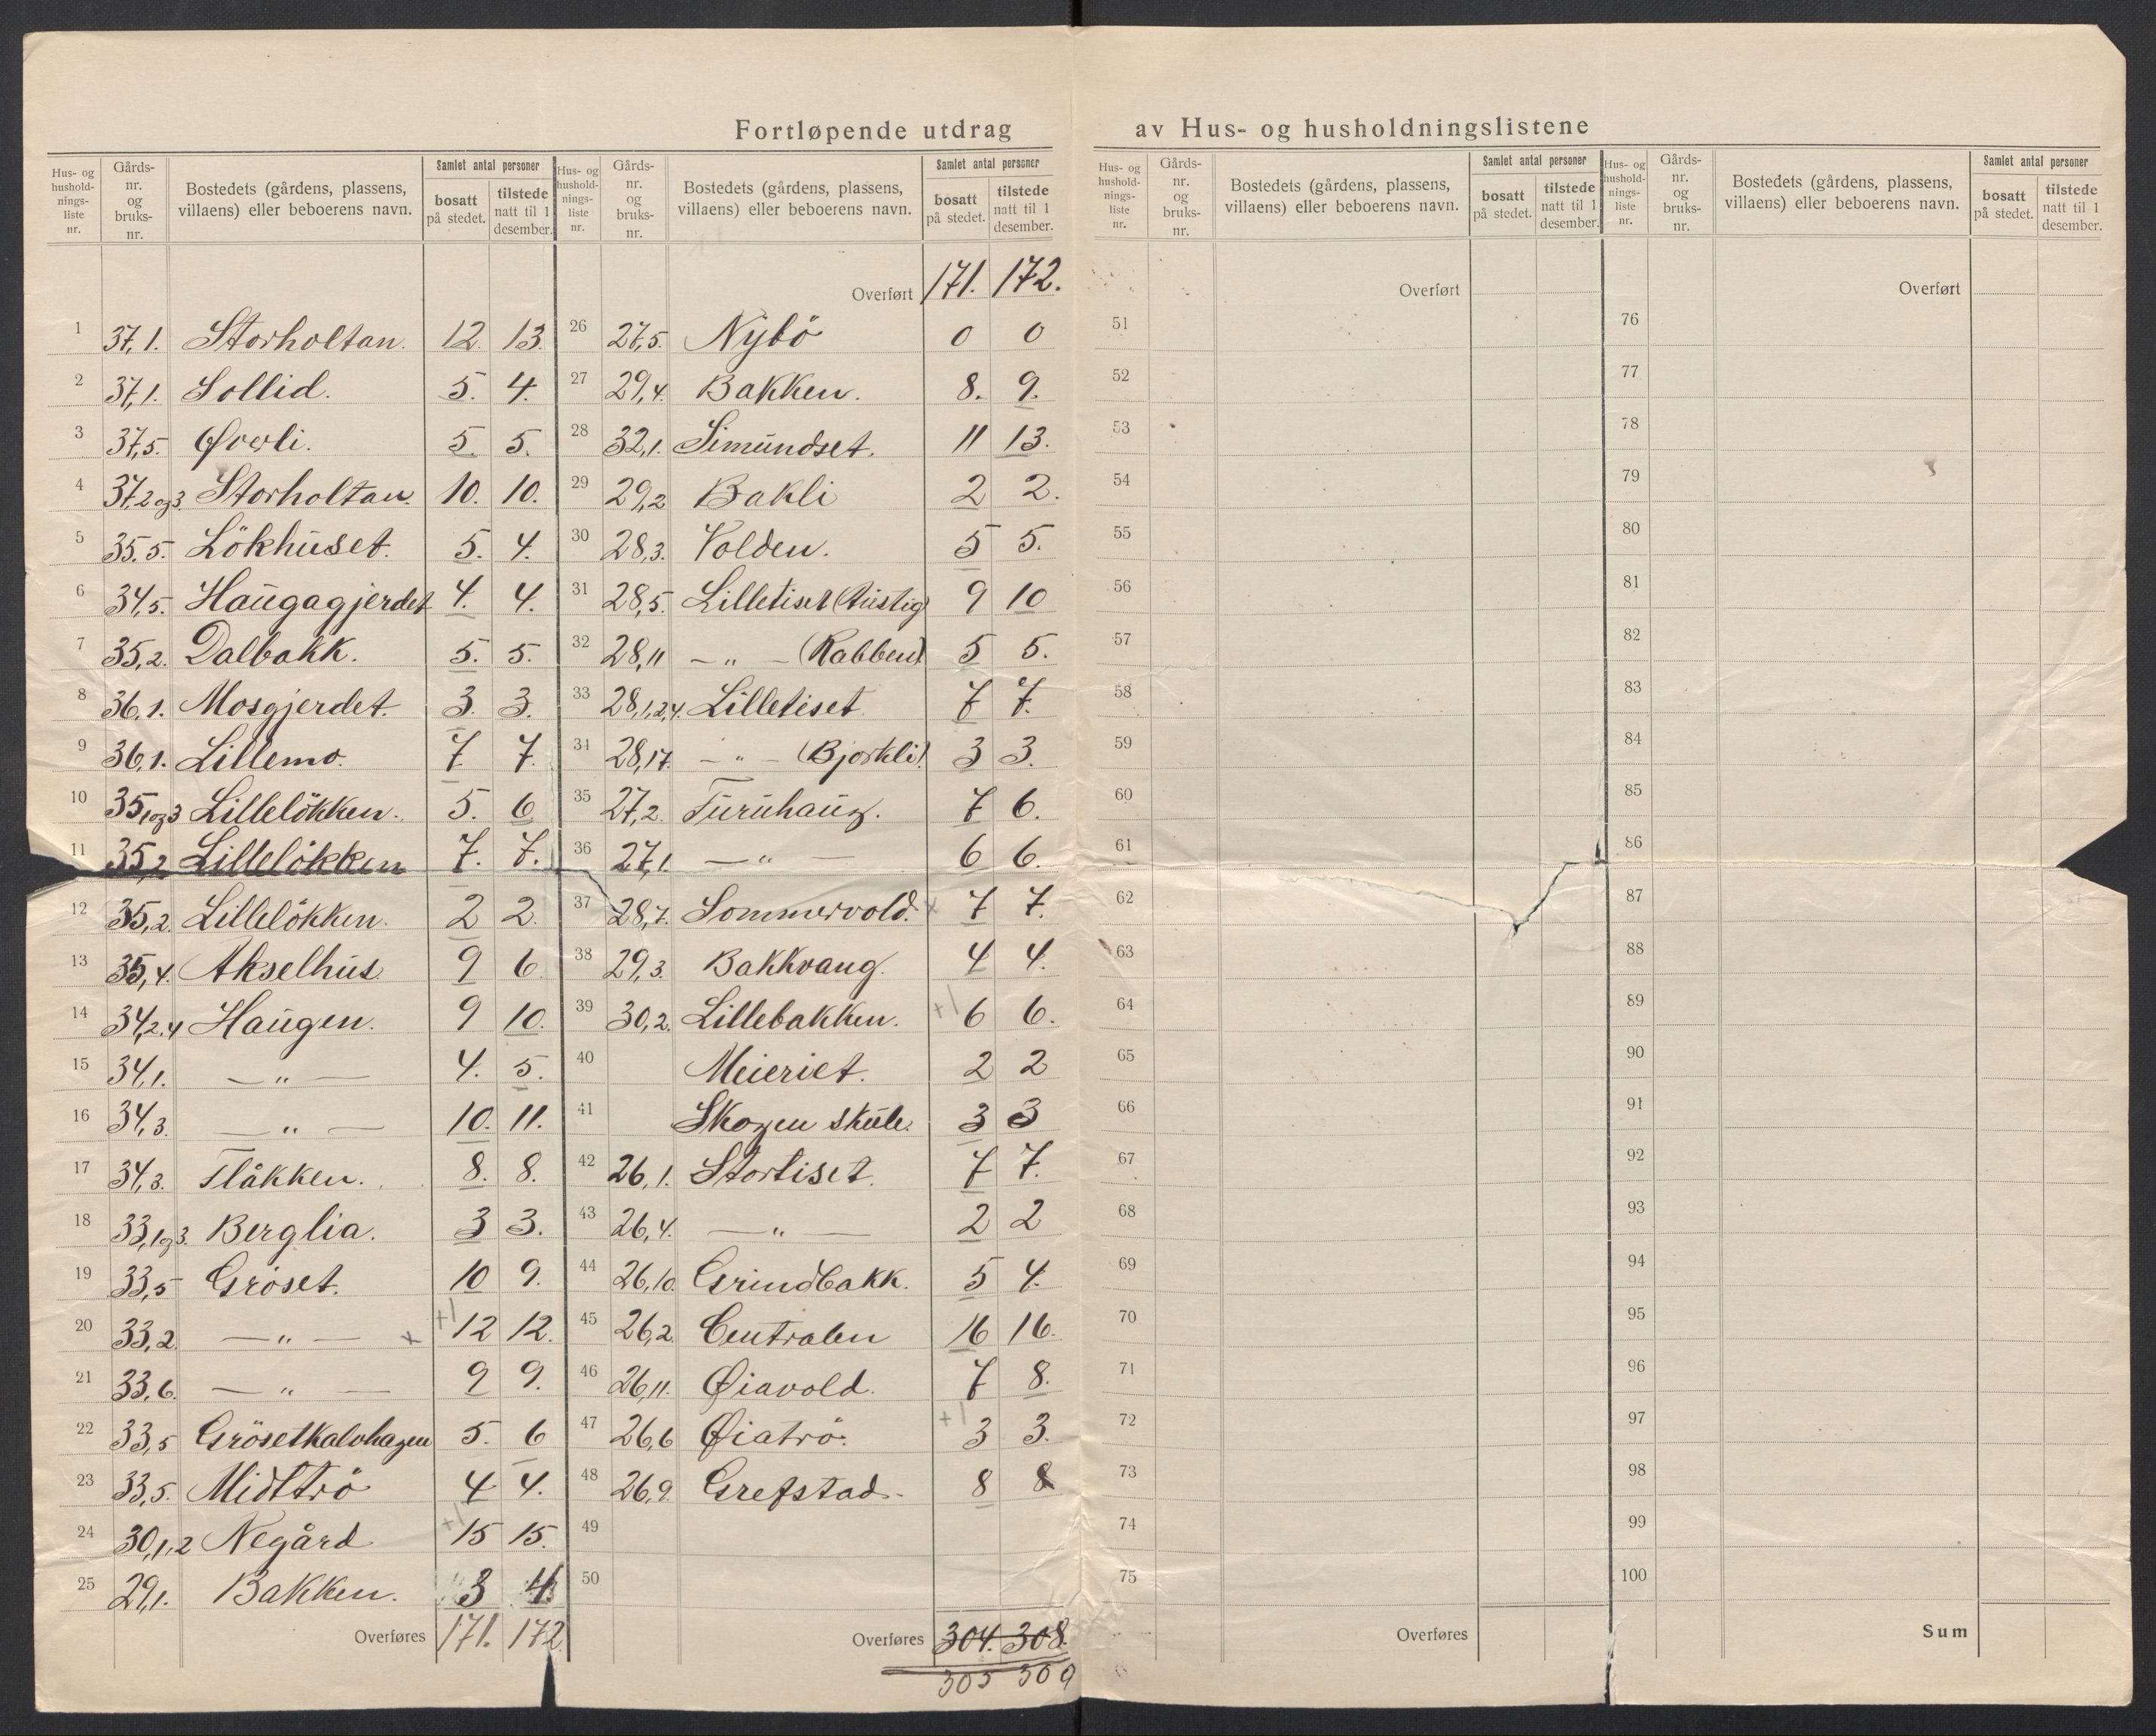 Fortløpende utdrag av Hus- og husholdningslistene
Hus- og husholdnings-liste nr. | Gårds-nr. og bruks-nr. | Bostedets (gårdens, plassens, villaens) eller beboerens navn. | Samlet antal personer | bosatt på stedet. | tilstede natt til 1 desember.
1 37,1. Storholtan. 12. 13.
2 37,1. Sollid. 5. 4.
3 37,5. Øverli. 5. 5.
4 37,2 og 3. Storholtan. 10. 10.
5 35,5. Lökhuset. 5. 4.
6 34,5. Haugagjerdet 4. 4.
7 35,2. Dalbakk. 5. 5.
8 36,1. Mosgjerdet. 3. 3.
9 36,1. Lillemo. 7 7.
10 35,1 og 3 Lillelökken. 5. 6
11 35,2 Lillelökken 7. 7.
12 35,2. Lillelökken. 2 2.
13 35,4. Akselhus. 9 6
14 34,2.4 Haugen. 9 10.
15 34,1. — " — 4. 5.
16 34,3. — " — 10. 11.
17 34,3. Flåkken. 8. 8.
18 33,1 og 3. Berglia. 3 3.
19 33,5 Gröset. 10 9.
20 33,2. — " — x +1 12 12.
21 33,6. — " — 9 9.
22 33,5 Grösetkalvhagen 5. 6
23 33,5. Midttrö 4 4.
24 30,1,2 Negård +1 15 15.
25 29,1. Bakken. 3 4
Overføres 171. 172.
Hus- og husholdnings-liste nr. | Gårds-nr. og bruks-nr. | Bostedets (gårdens, plassens, villaens) eller beboerens navn. | Samlet antal personer | bosatt på stedet. | tilstede natt til 1 desember.
Overført 171. 172.
26 27,5. Nybö 0 0
27 29,4. Bakken. 8. 9.
28 32,1. Simundset. 11 13.
29 29,2 Bakli 2 2.
30 28,3. Volden. 5 5.
31 28,5. Lilletiset (Austig) 9 10
32 28,11 — " — (Rabben). 5 5.
33 28,1,2,4. Lilletiset 7 7.
34 28,17. — " — (Bjorkli). 3 3.
35 27,2. Furuhaug. 7 6.
36 27,1. — " — 6 6.
37 28,7. Sommervold. x 7 7.
38 29,3. Bakkvang. 4 4.
39 30,2. Lillebakken. +1 6 6.
40 Meieriet. 2 2
41 Skogen skule. 3 3
42 26,1. Stortiset. 7 7.
43 26,4. — " — 2 2
44 26,10. Grindbakk. 5 4.
45 26,2. Centralen 16 16.
46 26,11. Øiavold. 7 8.
47 26,6 Øiatrö. +1 3 3.
48 26,9. Grefstad. 8 8
49
50
Overføres 304. 308.
305 309
Hus- og husholdnings-liste nr. | Gårds-nr. og bruks-nr. | Bostedets (gårdens, plassens, villaens) eller beboerens navn. | Samlet antal personer | bosatt på stedet. | tilstede natt til 1 desember.
Overført
51
52
53
54
55
56
57
58
59
60
61
62
63
64
65
66
67
68
69
70
71
72
73
74
75
Overføres
Hus- og husholdnings-liste nr. | Gårds-nr. og bruks-nr. | Bostedets (gårdens, plassens, villaens) eller beboerens navn. | Samlet antal personer | bosatt på stedet. | tilstede natt til 1 desember.
Overført
76
77
78
79
80
81
82
83
84
85
86
87
88
89
90
91
92
93
94
95
96
97
98
99
100
Sum